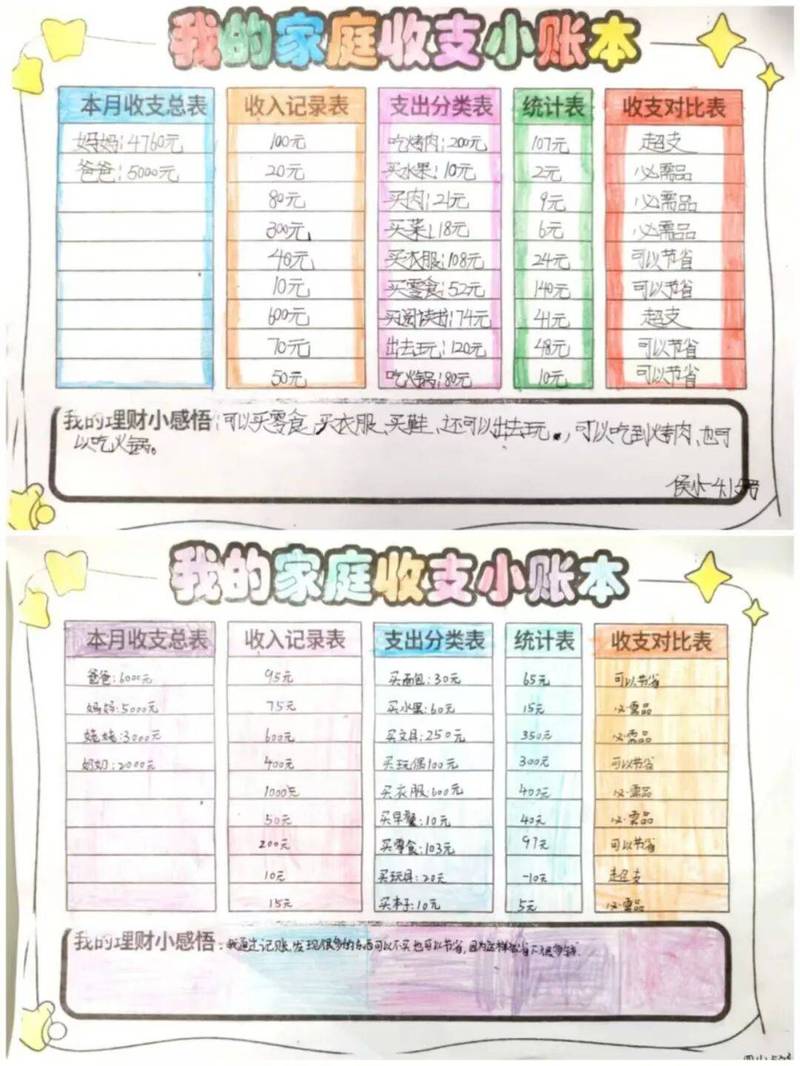 我的家庭收支小账本
本月收支总表 收入记录表 支出分类表 统计表 收支对比表
妈妈:4760元 100元 吃烤肉:200元 107元 超支
爸爸:5000元 20元 买水果:10元 2元 必需品
80元 买肉:21元 9元 必需品
300元 买菜:18元 6元 必需品
40元 买衣服:108元 24元 可以节省
10元 买零食:52元 140元 可以节省
600元 买阅读书:74元 41元 超支
70元 出去玩:120元 48元 可以节省
50元 吃火锅:80元 10元 可以节省
我的理财小感悟:可以买零食、买衣服、买鞋、还可以出去玩。,可以吃到烤肉、也可
以吃火锅。
我的家庭收支小账本
本月收支总表 收入记录表 支出分类表 统计表 收支对比表
爸爸:6000元 95元 买面包:30元 65元 可以节省
妈妈:5000元 75元 买水果:60元 15元 必需品
姥姥:3000元 600元 买文具:250元 350元 必需品
奶奶:2000元 400元 买玩偶100元 300元 可以节省
1000元 买衣服:600元 400元 必需品
50元 买早餐:10元 40元 必需品
200元 买零食:103元 97元 可以节省
10元 买玩具:20元 -10元 超支
15元 买本子:10元 5元 必需品
我的理财小感悟:我通过记账,发现很多的东西可以不买也可以节省,因为这样能省下很多钱.